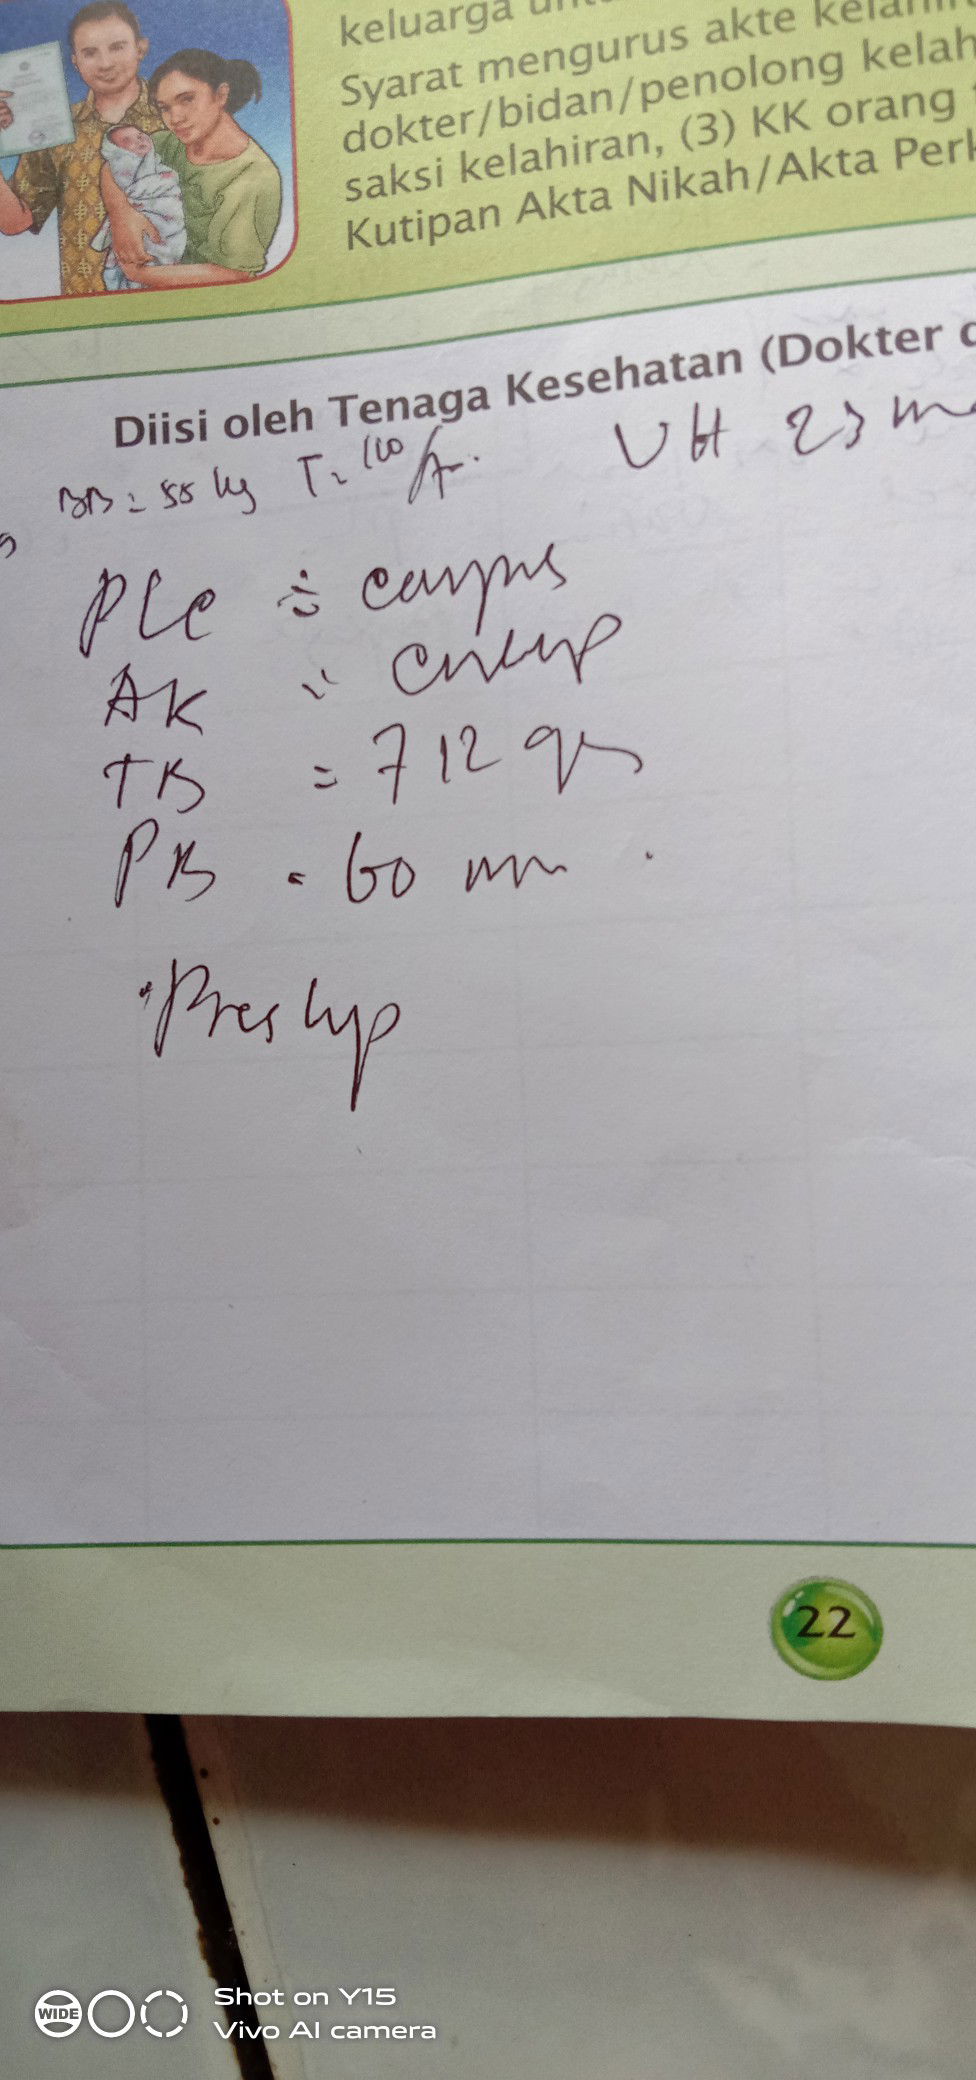 keluarga
Syarat mengurus akte kelahir
dokter/bidan/penolong kelah
saksi kelahiran, (3) KK orang
Kutipan Akta Nikah/Akta Perk
Diisi oleh Tenaga Kesehatan (Dokter d
BB = 55 kg T = 110/
UH 23 m
PLC = corpus
AK = cukup
TB = 712 gr
PB = 60 mm
Preskep
22
WIDE
Shot on Y15
Vivo AI camera